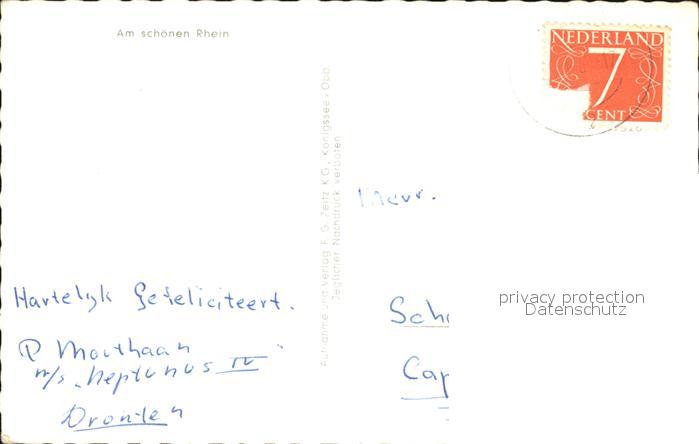 Am schönen Rhein
NEDERLAND
7
CENT
Aufnahme und Verlag F. G. Zeitz KG., Königssee, Obb.
Jeglicher Nachdruck verboten
Mevr.
Hartelijk Gefeliciteert.
P Mouthaan
m/s „Neptunus IV"
Dronten
Sch
Cap
privacy protection
Datenschutz